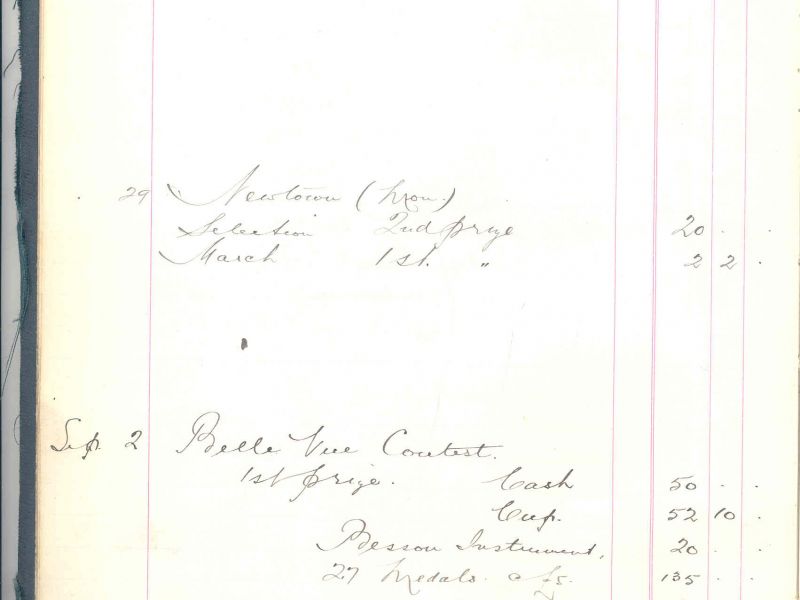 29 Newtown (Mon.)
Selection 2nd prize 20 . .
March 1st. " 2 2 .
Sep. 2 Belle Vue Contest.
1st prize. Cash 50 . .
Cup. 52 10 .
Besson Instrument. 20 . .
27 Medals @ £5. 135 . .